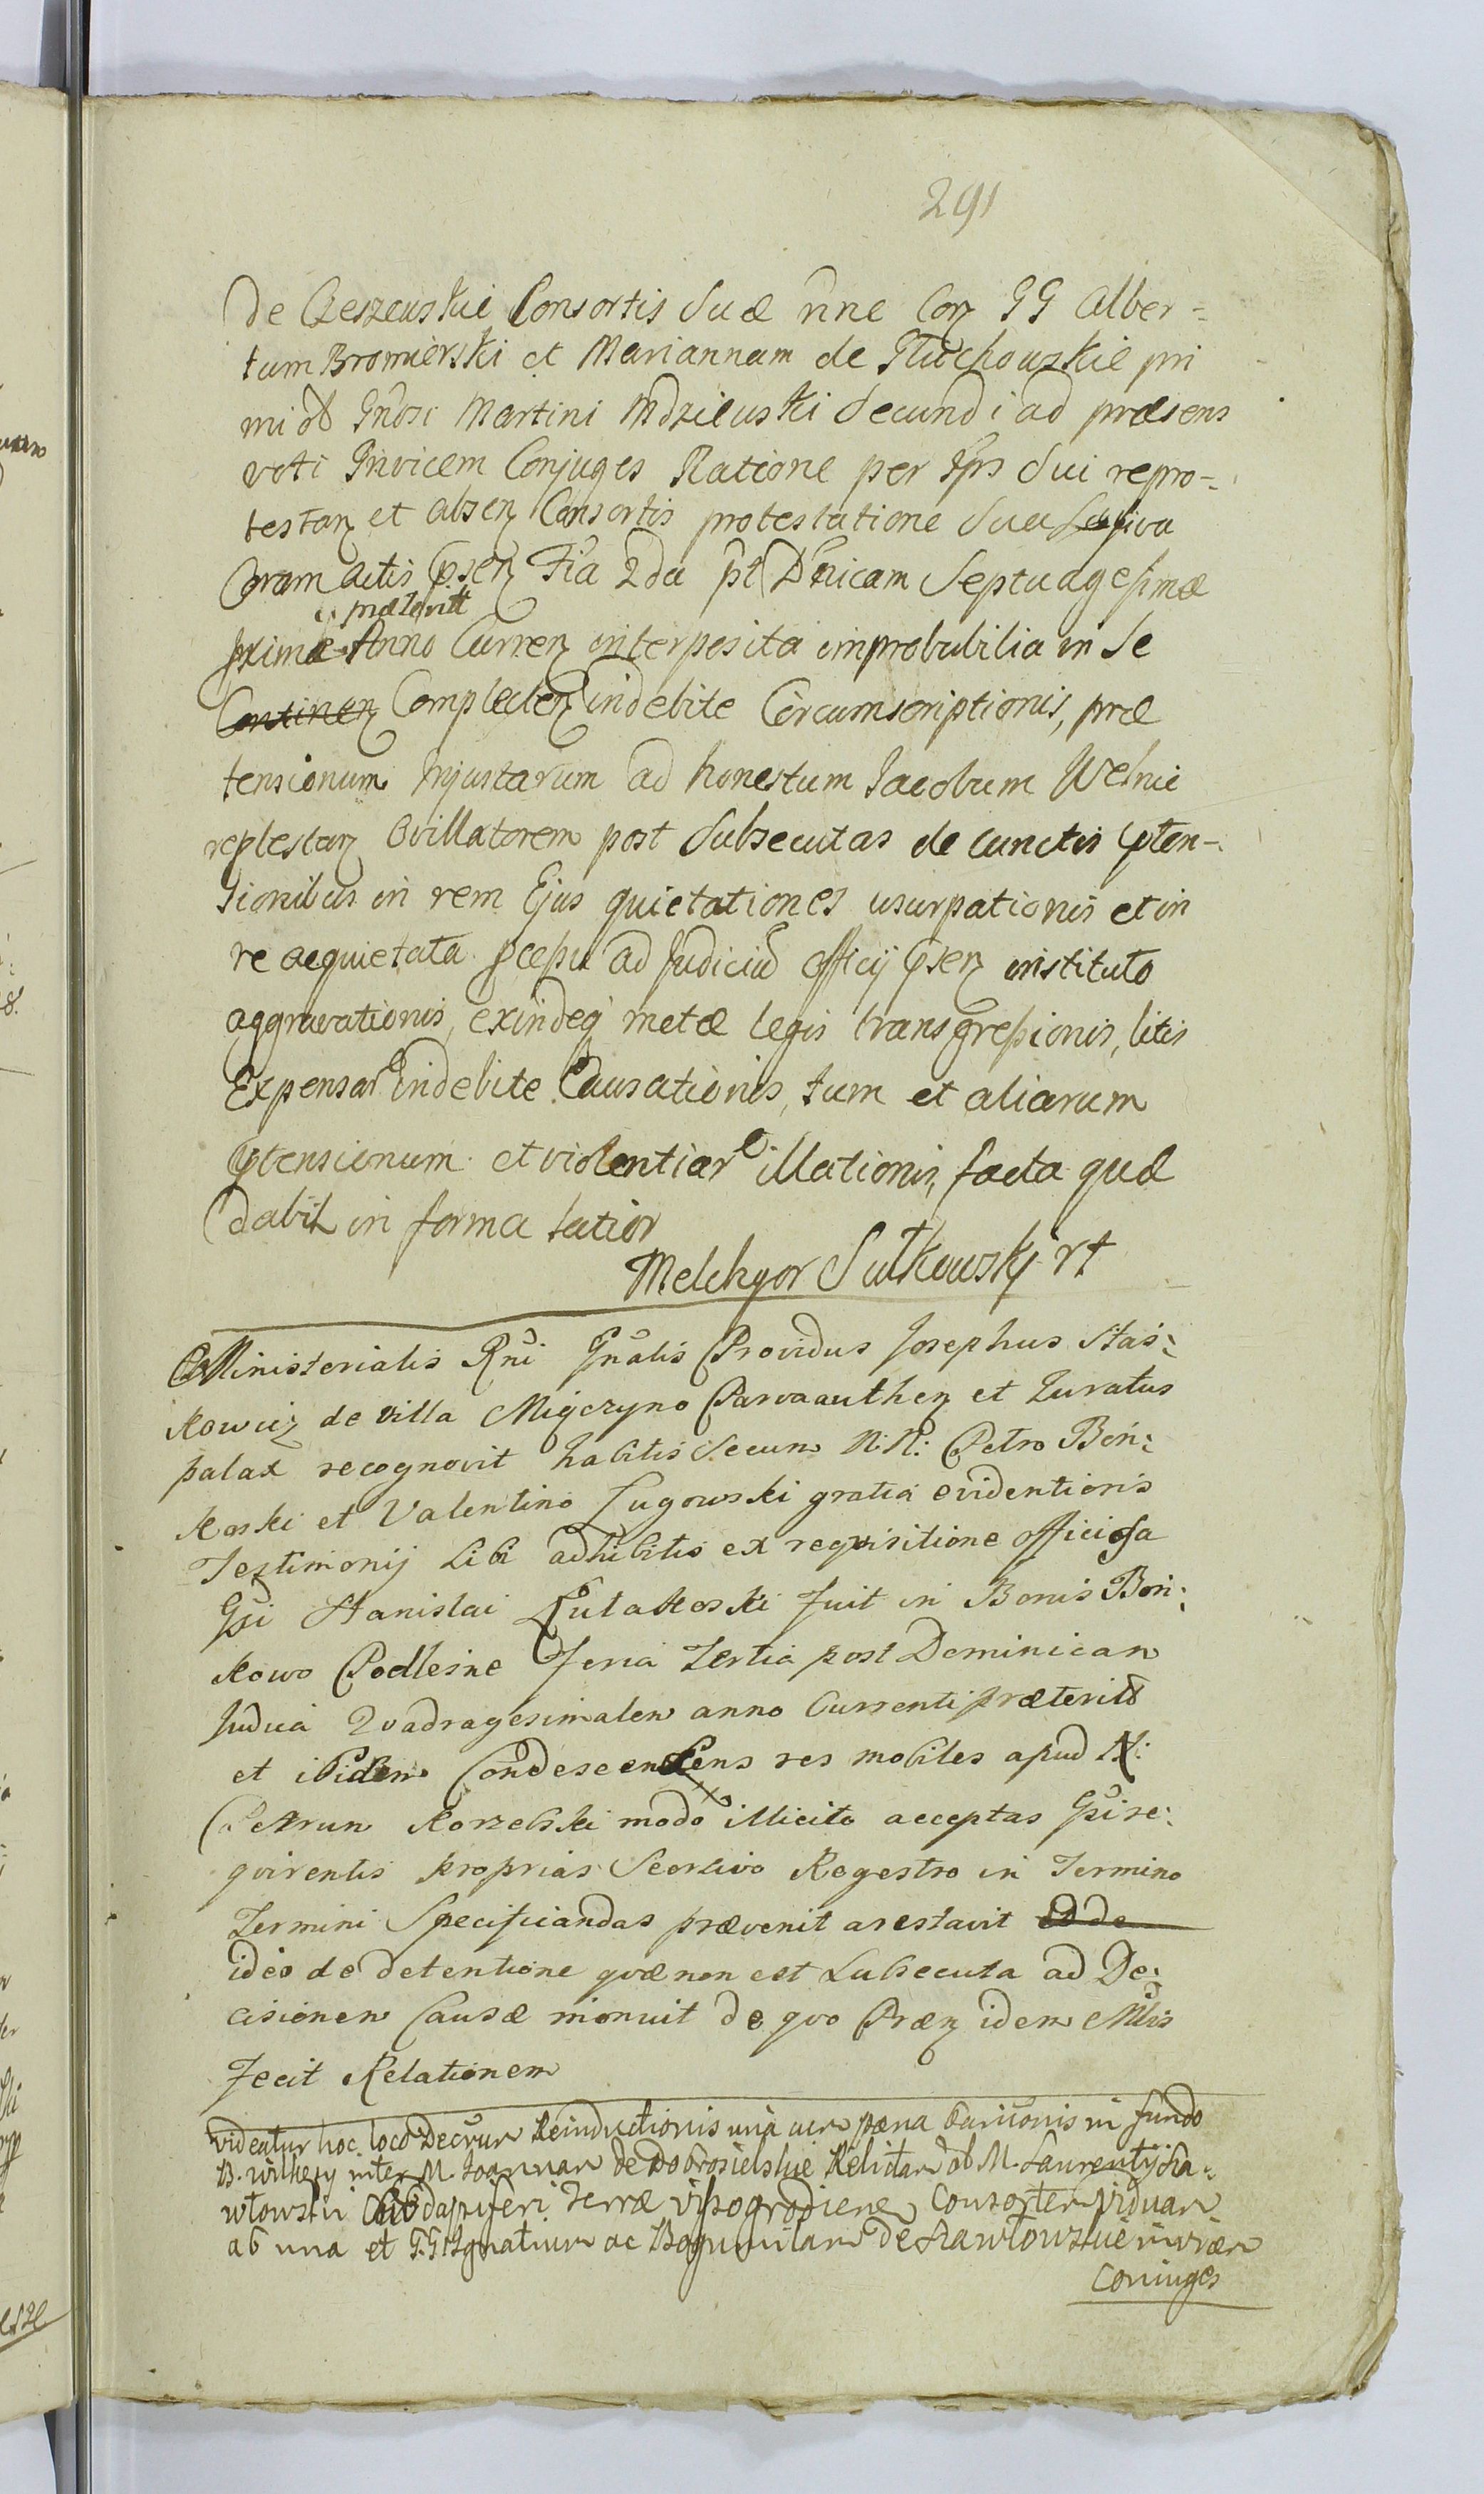 291
De Czeszewskie Consortis Suæ nne Con GG Alber=
tum Bromierski et Mariannam de Głuchowskie pri
mi olt Gnosi Martini Mdzieuski Secundi ad præsens
voti Invicem Conjuges Ratione per Ips Sui repro=
testan et absen Consortis protestatione Sua
Coram actis psen Fia 2da pt Dnicam Septuagesimæ
præterit
pxime Anno Curren interposita improbabilia in Se
Continen Complecten indebite Circumscriptionis, præ
tensionum Injustarum ad honestum Jacobum Welnic
replestan Ovillatorem post Subsecutas de cunctis pten=
sionibus in rem Ejus quietationes usurpationis et in
re acquietata pcessu ad Judiciū officij psen instituto
aggravationis, exindeq metæ legis transgressionis, litis
Expensar indebite Causationis, tum et aliarum
ptensionum et violentiar illationis, facta quæ
dabit in forma latior
Melchyor Sutkowsky
Ministerialis Rni Gnalis Providus Josephus Stas:
kowicz de villa Migczyno Parva authen et Juratus
palax recognovit habitis Secum N:N: Petro Boń:
koski et Valentino Ługowski gratia evidentioris
Testimonij Sibi adhibitis ex requisitione officiosa
Gsi Stanislai Rutakoski fuit in Bonis Boń:
kowo Podleśne Feria Tertia post Dominicam
Judica Quadragesimalem anno Currenti præterito
et ibidem Condescendens res mobiles apud N:
Petrum Korzebski modo illicito acceptas Gsi re:
quirentis proprias Seorsivo Regestro in Termino
Termini Specificandas prævenit arestavit
ideo de detentione quæ non est Subsecuta ad De:
cisionem Causæ monuit de quo Præn idem Mlis
Fecit Relationem
videatur hoc loco Decrum Reinductionis una cum pæna Banionis in fundo
B. Wilkesy inter M. Joannam de Dobrosielskie Relictam olt M. Laurentij Sza=
włowski Subdapiferi Terræ Vissogrodiene Consortem Viduam
ab una et G.G Ignatium ac Bogumilam de Szawłowskie
Coniuges